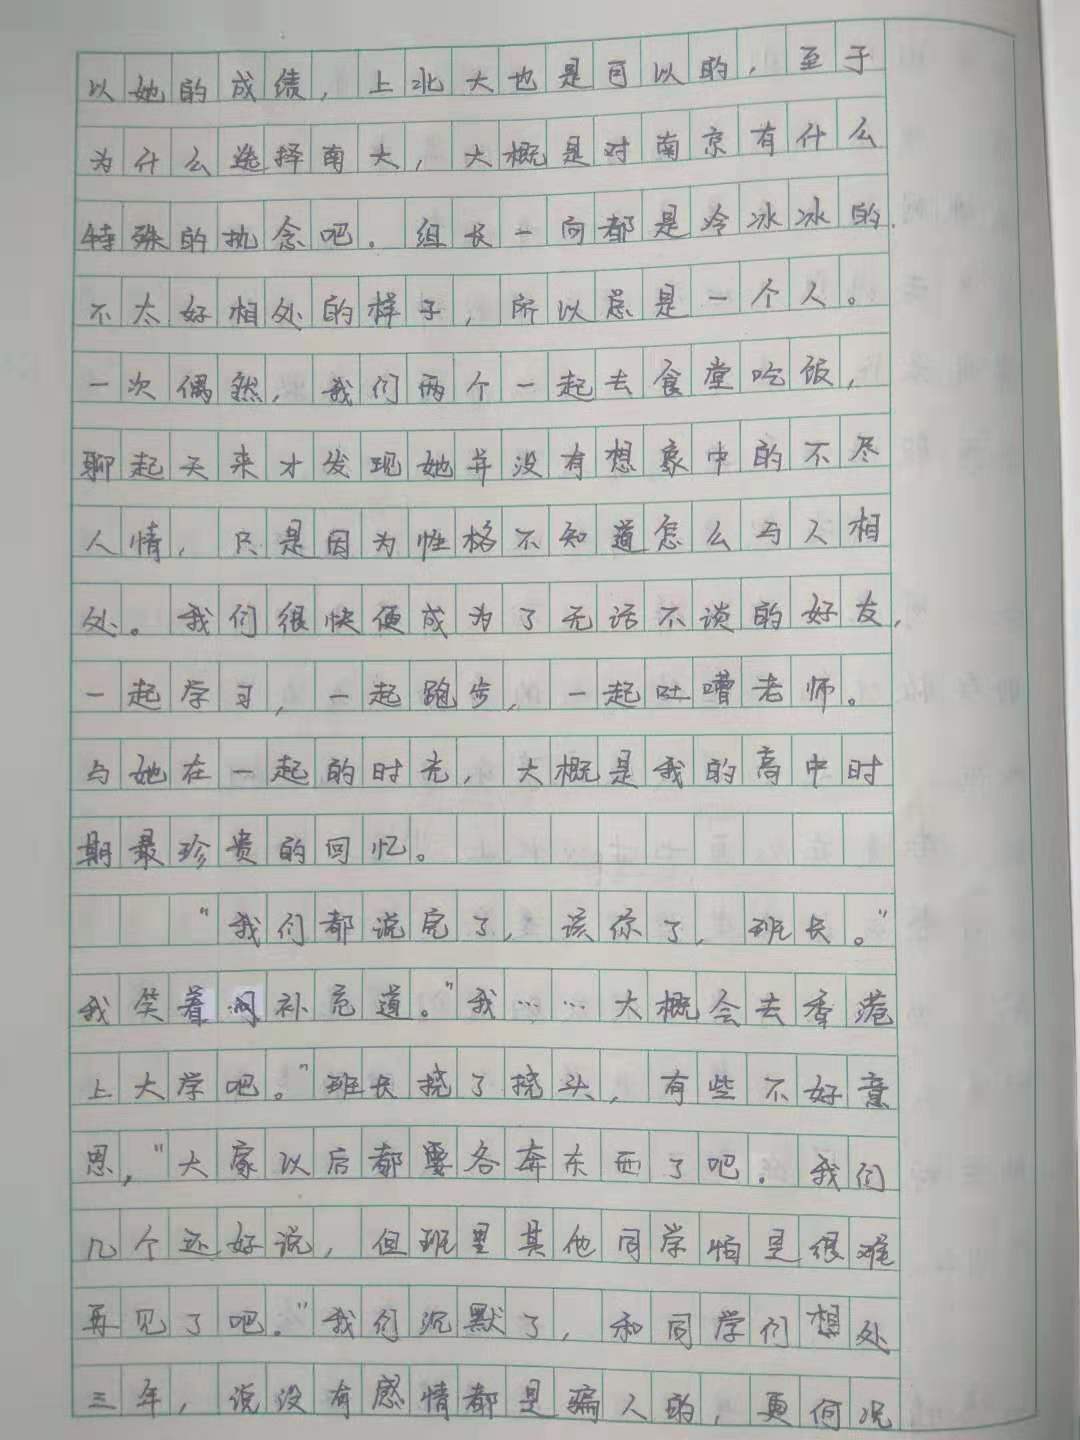 以她的成绩，上北大也是可以的，至于
为什么选择南大，大概是对南京有什么
特殊的执念吧。组长一向都是冷冰冰的，
不太好相处的样子，所以总是一个人。
一次偶然，我们两个一起去食堂吃饭，
聊起天来才发现她并没有想象中的不尽
人情，只是因为性格不知道怎么与人相
处。我们很快便成为了无话不谈的好友，
一起学习，一起跑步，一起吐嘈老师。
与她在一起的时光，大概是我的高中时
期最珍贵的回忆。
“我们都说完了，该你了，班长。”
我笑着补充道。“我……大概会去香港
上大学吧。”班长挠了挠头，有些不好意
思，“大家以后都要各奔东西了吧。我们
几个还好说，但班里其他同学怕是很难
再见了吧。”我们沉默了，和同学们相处
三年，说没有感情都是骗人的，更何况